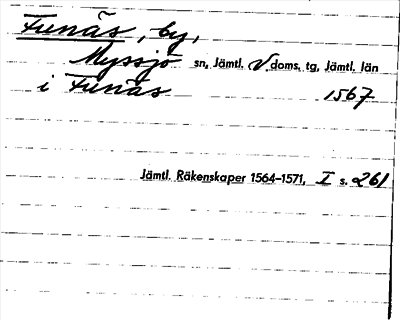 Funäs, by,
Myssjö sn, Jämtl. V. doms. tg, Jämtl. län
i Funäs 1567
Jämtl. Räkenskaper 1564–1571, I s. 261